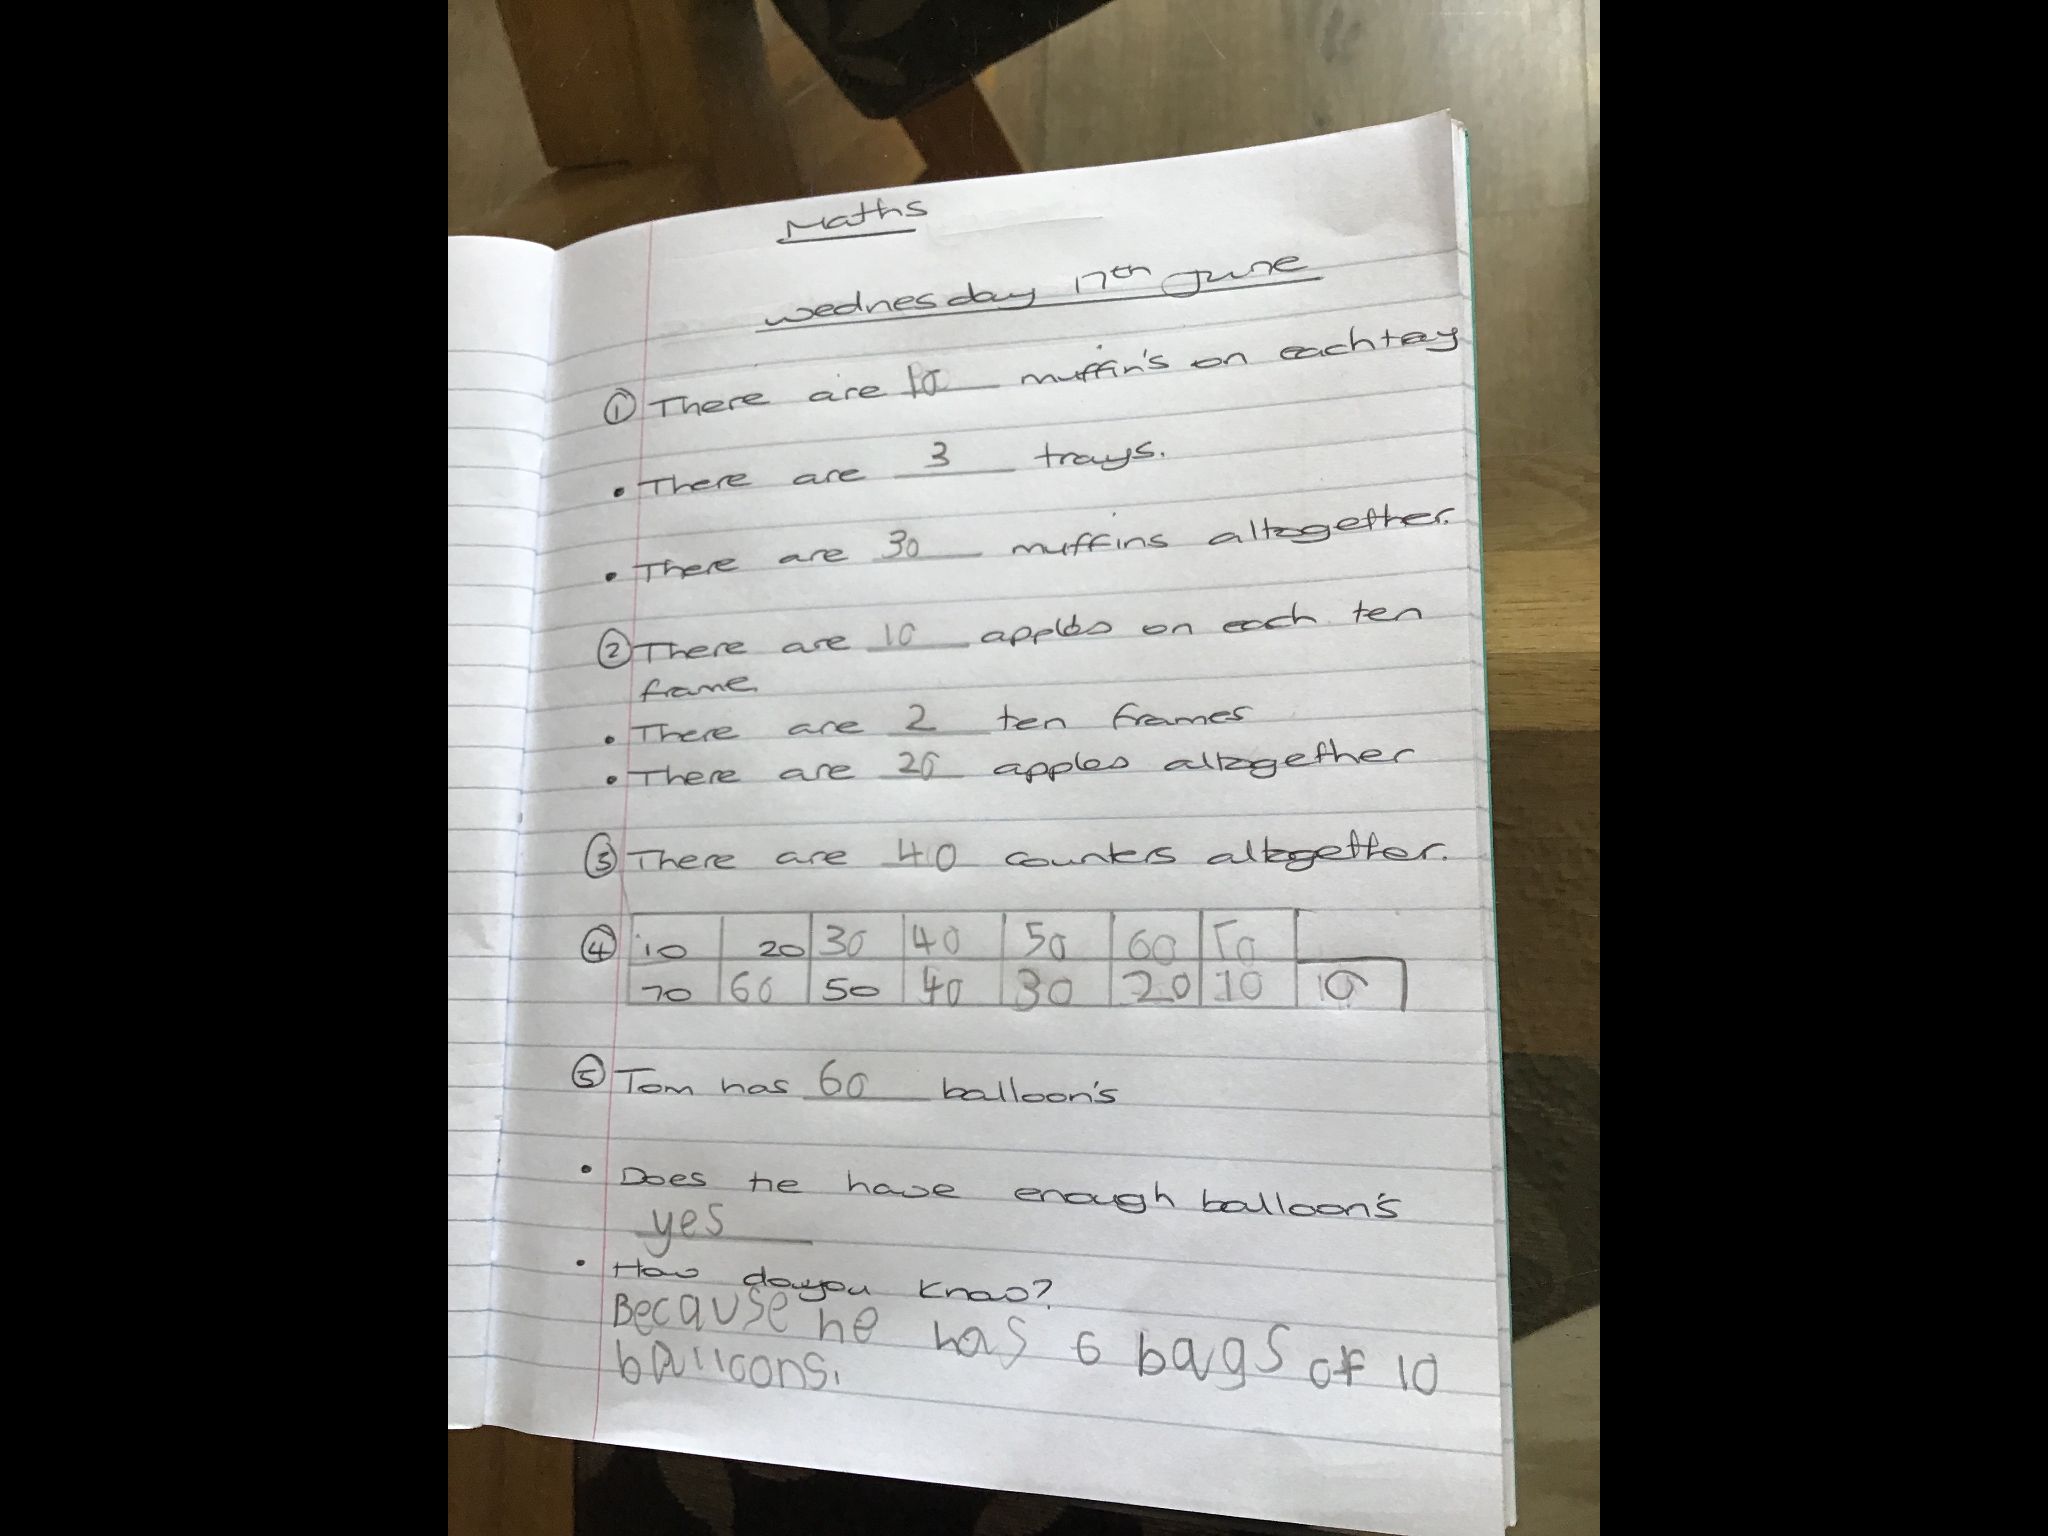 Maths
Wednesday 17th June
① There are 10 muffin's on each tray
• There are 3 trays.
• There are 30 muffins altogether.
② There are 10 apples on each ten
frame.
• There are 2 ten frames
• There are 20 apples altogether
③ There are 40 counters altogether.
④ 10 20 30 40 50 60 70
70 60 50 40 30 20 10 0
⑤ Tom has 60 balloon's
• Does He have enough balloon's
yes
• How do you know?
Because he has 6 bags of 10
balloons.